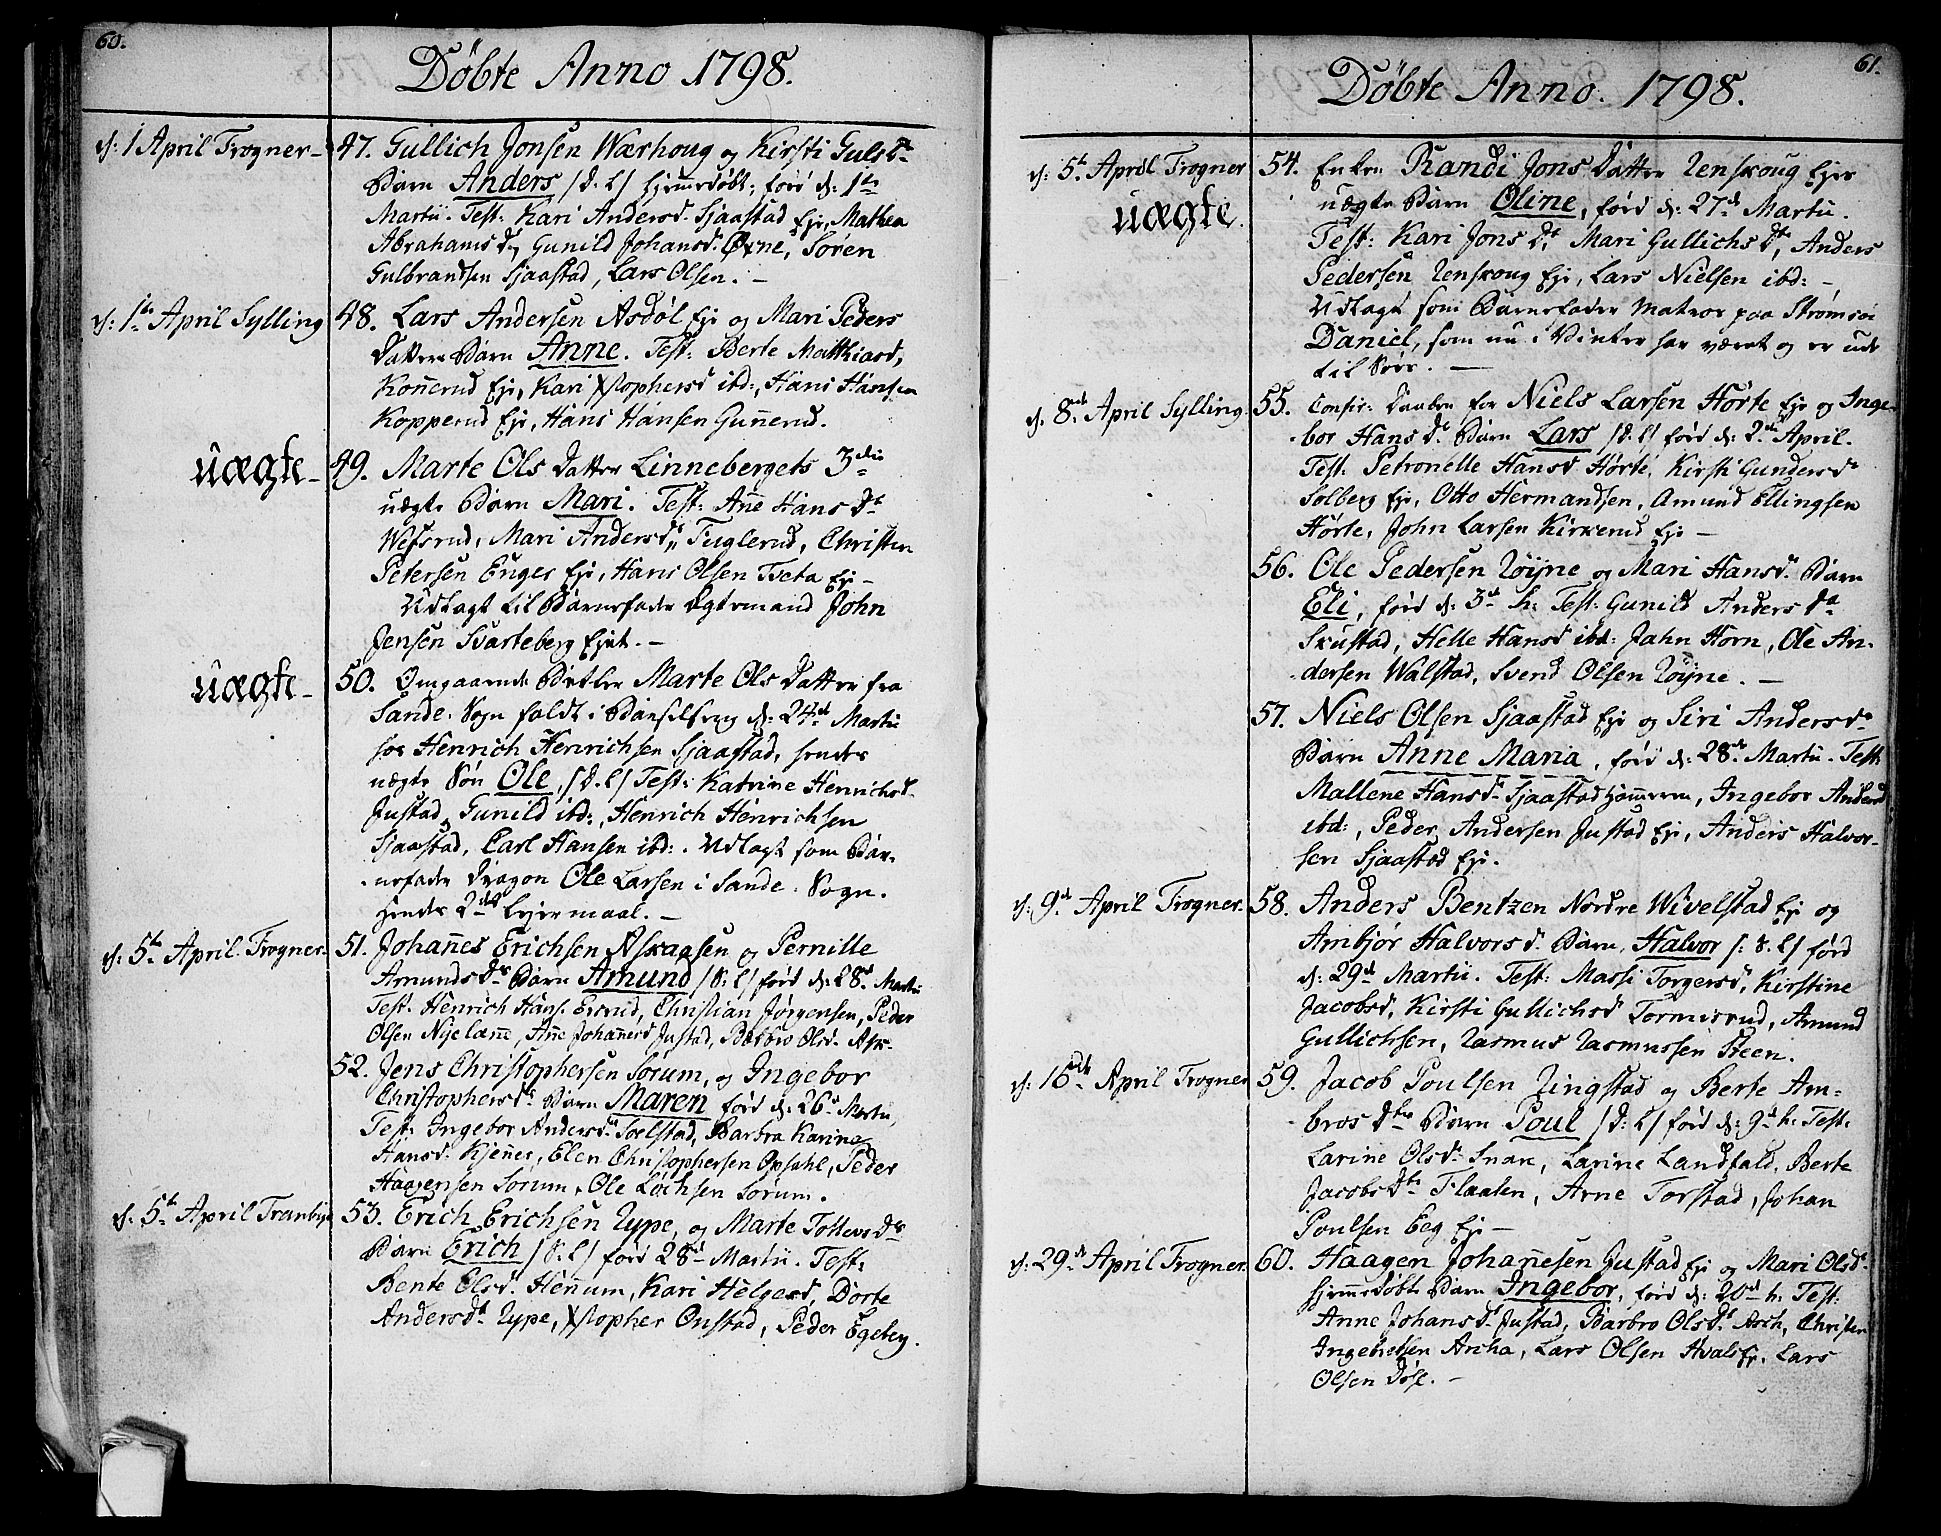 60.
Döbte Anno 1798.
d: 1 April Trogner
47. Gullich Jonsen Wærhoug og Kirsti Gulsd.
Barn Anders /d. L/ hjemedöbt, föd d: 1te
Martii. Test: Kari Andersd. Sjaastad Eje, Mathea
Abrahamsd, Gunild Johansd. Öxne, Sören
Gulbrandsen Sjaastad, Lars Olsen. –
d: 1te April Sylling
48. Lars Andersen Asdöl Eje og Mari Peders
Datters Barn Anne. Test: Berte Matthiasd,
Konnerud Eje, Kari Xstophersd ibd:, Hans Hansen
Kopperud Eje, Hans Hansen Gunnerud.
uægte –
49. Marte Ols Datter Linnebergets 3die
uægte Barn Mari. Test: Anne Hans Dt
Wefsrud, Mari Andersd. Fuglerud, Christen
Petersen Enger Eje, Hans Olsen Tveta Eje –
Udlagt til Barnefader Egtemand John
Jensen Svarteberg Ejet. –
uægte –
50. Omgaaende Betler Marte Ols Datter fra
Sande Sogn faldt i Barselseng d: 24de Martii
hos Henrich Henrichsen Sjaastad, hendes
uægte Sön Ole, /d. L/ Test: Katrine Henrichsd.
Justad, Gunild ibd:, Henrich Henrichsen
Sjaastad, Carl Hansen ibd:. Udlagt som Bar-
nefader Dragon Ole Larsen i Sande Sogn.
Hendes 2det Lejermaal. –
d: 5te April Trogner.
51. Johannes Erichsen Askaasen og Pernille
Amundsdr Barn Amund /d: L/ föd d: 28de Martii
Test. Henrich Hans. Ersrud, Christian Jörgensen, Peder
Olsen Nyelænne, Anne Johannesd Justad, Barbro Olsd. Ask-
52. Jens Christophersen Sorum, og Ingebor
Christophersdr Barn Maren föd d: 26de Martii,
Test: Ingebor Andersdr Toelstad, Barbra Karine
Hansd. Kjenner, Elen Christophersen Opsahl, Peder
Haagensen Sorum, Ole Lochsen Sorum.
d: 5te April Tranbye
53. Erich Erichsen Rype, og Marte Tostens Dr
Barn Erich /d: L/ föd 28de Martii. Test:
Bente Olsd. Hennum, Kari Helgesd, Dorte
Andersdt Rype, Xstopher Onstad, Peder Egeberg.
61.
Döbte Anno. 1798.
d: 5te April Trogner
uægte.
54. Enken Randi Jons Datter Renskoug Ejes
uægte Barn Oline, föd d: 27de Martii.
Test: Kari Jons Dt, Mari Gullichs Dt, Anders
Pedersen Renskoug Eje, Lars Nielsen ibd: –
Udlagt som Barnefader Matros paa Strömsöe
Daniel, som nu i Vinter har været og er ude
til Söes. –
d. 8de April Sylling.
55. Confir: Daaben for Niels Larsen Hörte Eje og Inge-
bor Hansdr Barn Lars /d. L/ föd d: 2den April.
Test: Petronelle Hansd Hörte, Kirsti Gundersdr
Solberg Eje, Otto Hermandsen, Amund Ellingsen
Hörte, John Larsen Kirkerud Eje –
56. Ole Pedersen Röyne og Mari Hansdr Barn
Eli, föd d: 3de h: Test: Gunild Anders Dr
Skustad, Helle Hansd ibd: Jahn Horn, Ole An-
dersen Walstad, Svend Olsen Röyne. –
57. Niels Olsen Sjaastad Eje og Siri Andersdr
Barn Anne Maria, föd d: 28de Martii. Test:
Mallene Hansdr Sjaastadhammeren, Ingebor Andersd
ibd:, Peder Andersen Justad Eje, Anders Halvor-
sen Sjaastad Eje.
d: 9de April Trogner.
58. Anders Bentzen Nordre Wivelstad Eje og
Ambjör Halvorsdr Barn, Halvor /: d. L/ föd
d: 29de Martii. Test: Massi Torgersd, Kirstine
Jacobsd, Kirsti Gullichsd Tormisrud, Amund
Gullichsen, Rasmus Rasmussen Steen.
d: 16de April Trogner
59. Jacob Poulsen Ringstad og Berte Am-
bros Dtr Barn Poul /d: L/ föd d: 9de h: Test:
Larine Olsdr Snar, Larine Landfald, Berte
Jacobs Dtr Flaalen, Arne Torstad, Johan
Poulsen Eeg Eje –
d: 29de April Trogner.
60. Haagen Johannesen Justad Eje og Mari Olsdr
hjemedöbte Barn Ingebor, föd d: 20de h: Test:
Anne Johansdr Justad, Barbro Olsdt Asch, Christen
Ingebretsen Archa, Lars Olsen Hvals Eje, Lars
Olsen Döse. –